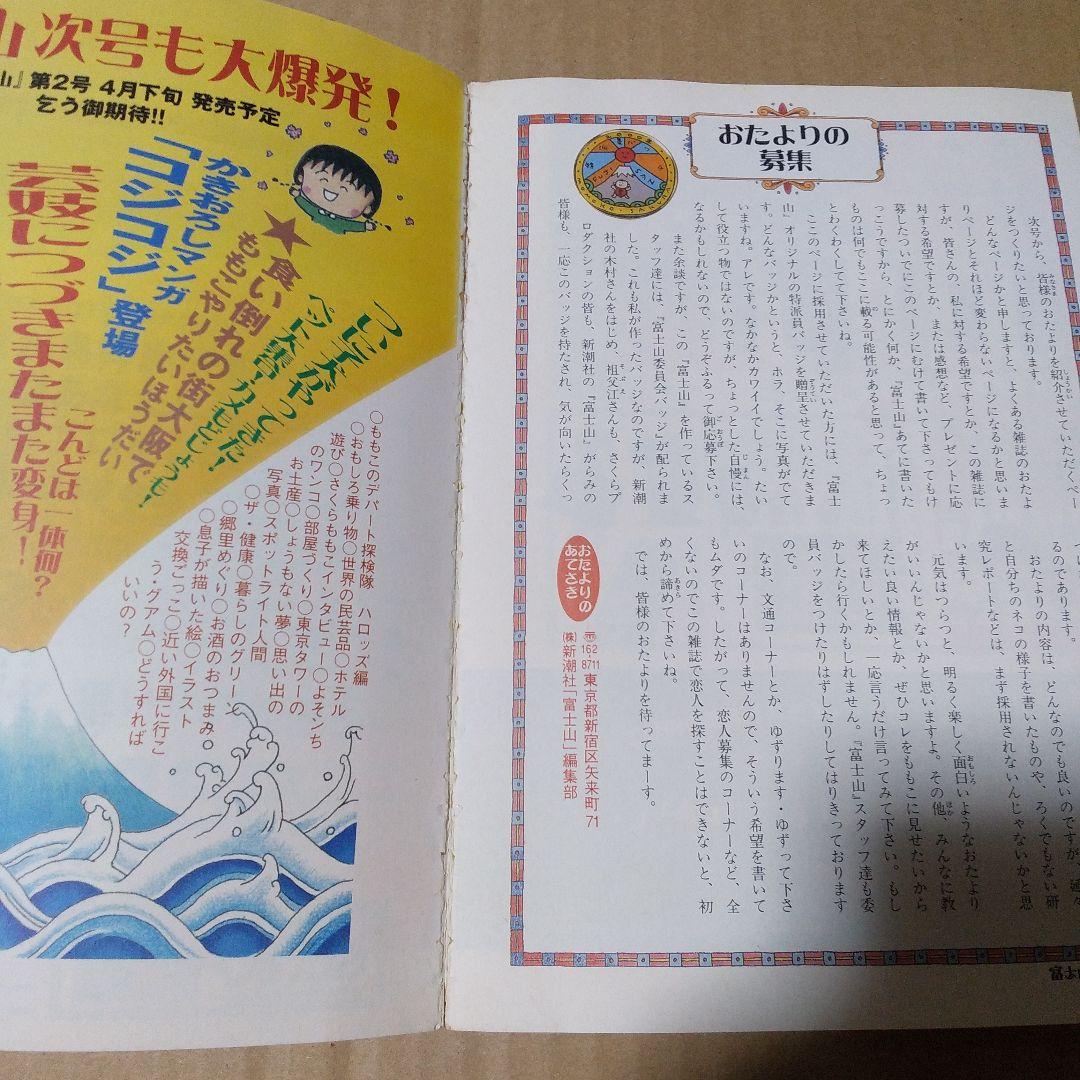 山 次号も大爆発!
山』第2号 4月下旬 発売予定
乞う御期待!!
ついに子犬がやってきた!
ペット大震(カメもどじょうも!
★食い倒れの街大阪で
ももこやりたいほうだい
かきおろしマンガ
「コジコジ」登場
こんどは一体何?
芸妓につづきまたまた変身!
○ももこのデパート探検隊 ハロッズ編
○おもしろ乗り物○世界の民芸品○ホテル
遊び○さくらももこインタビュー○よそンち
のワンコ○部屋づくり○東京タワーの
お土産○しょうもない夢○思い出の
写真○スポットライト人間
○ザ・健康○暮らしのグリーン
○郷里めぐり○お酒のおつまみ
○息子が描いた絵○イラスト
交換ごっこ○近い外国に行こ
う・グアム○どうすれば
いいの?
おたよりの
募集
FUJI SAN
次号から、皆様のおたよりを紹介させていただくペー
ジをつくりたいと思っております。
どんなページかと申しますと、よくある雑誌のおたよ
りページとそれほど変わらないページになるかと思いま
すが、皆さんの、私に対する希望ですとか、この雑誌に
対する希望ですとか、または感想など、プレゼントに応
募したついでにこのページにむけて書いて下さってもけ
っこうですから、とにかく何か、『富士山』あてに書いた
ものは何でもここに載る可能性があると思って、ちょっ
とわくわくして下さいね。
このページに採用させていただいた方には、『富士
山』オリジナルの特派員バッジを贈呈させていただきま
す。どんなバッジかというと、ホラ、そこに写真がでて
いますね。アレです。なかなかカワイイでしょう。たい
して役立つ物ではないのですが、ちょっとした自慢には、
なるかもしれないので、どうぞふるって御応募下さい。
また余談ですが、この『富士山』を作っているス
タッフ達には、『富士山委員会バッジ』が配られま
した。これも私が作ったバッジなのですが、新潮
社の木村さんをはじめ、祖父江さんも、さくらプ
ロダクションの皆も、新潮社の『富士山』がらみの
皆様も、一応このバッジを持たされ、気が向いたらくっ
るのであります。
おたよりの内容は、どんなのでも良いのですが
と自分ちのネコの様子を書いたものや、ろくでもない研
究レポートなどは、まず採用されないんじゃないかと思
います。
元気はつらつと、明るく楽しく面白いようなおたより
がいいんじゃないかと思いますよ。その他、みんなに教
えたい良い情報とか、ぜひコレをももこに見せたいから
来てほしいとか、一応言うだけ言ってみて下さい。もし
かしたら行くかもしれません。『富士山』スタッフ達も委
員バッジをつけたりはずしたりしてはりきっております
ので。
なお、文通コーナーとか、ゆずります・ゆずって下さ
いのコーナーはありませんので、そういう希望を書いて
もムダです。したがって、恋人募集のコーナーなど、全
くないのでこの雑誌で恋人を探すことはできないと、初
めから諦めて下さいね。
では、皆様のおたよりを待ってまーす。
おたよりの
あてさき
〒162 8711 東京都新宿区矢来町71
(株)新潮社「富士山」編集部